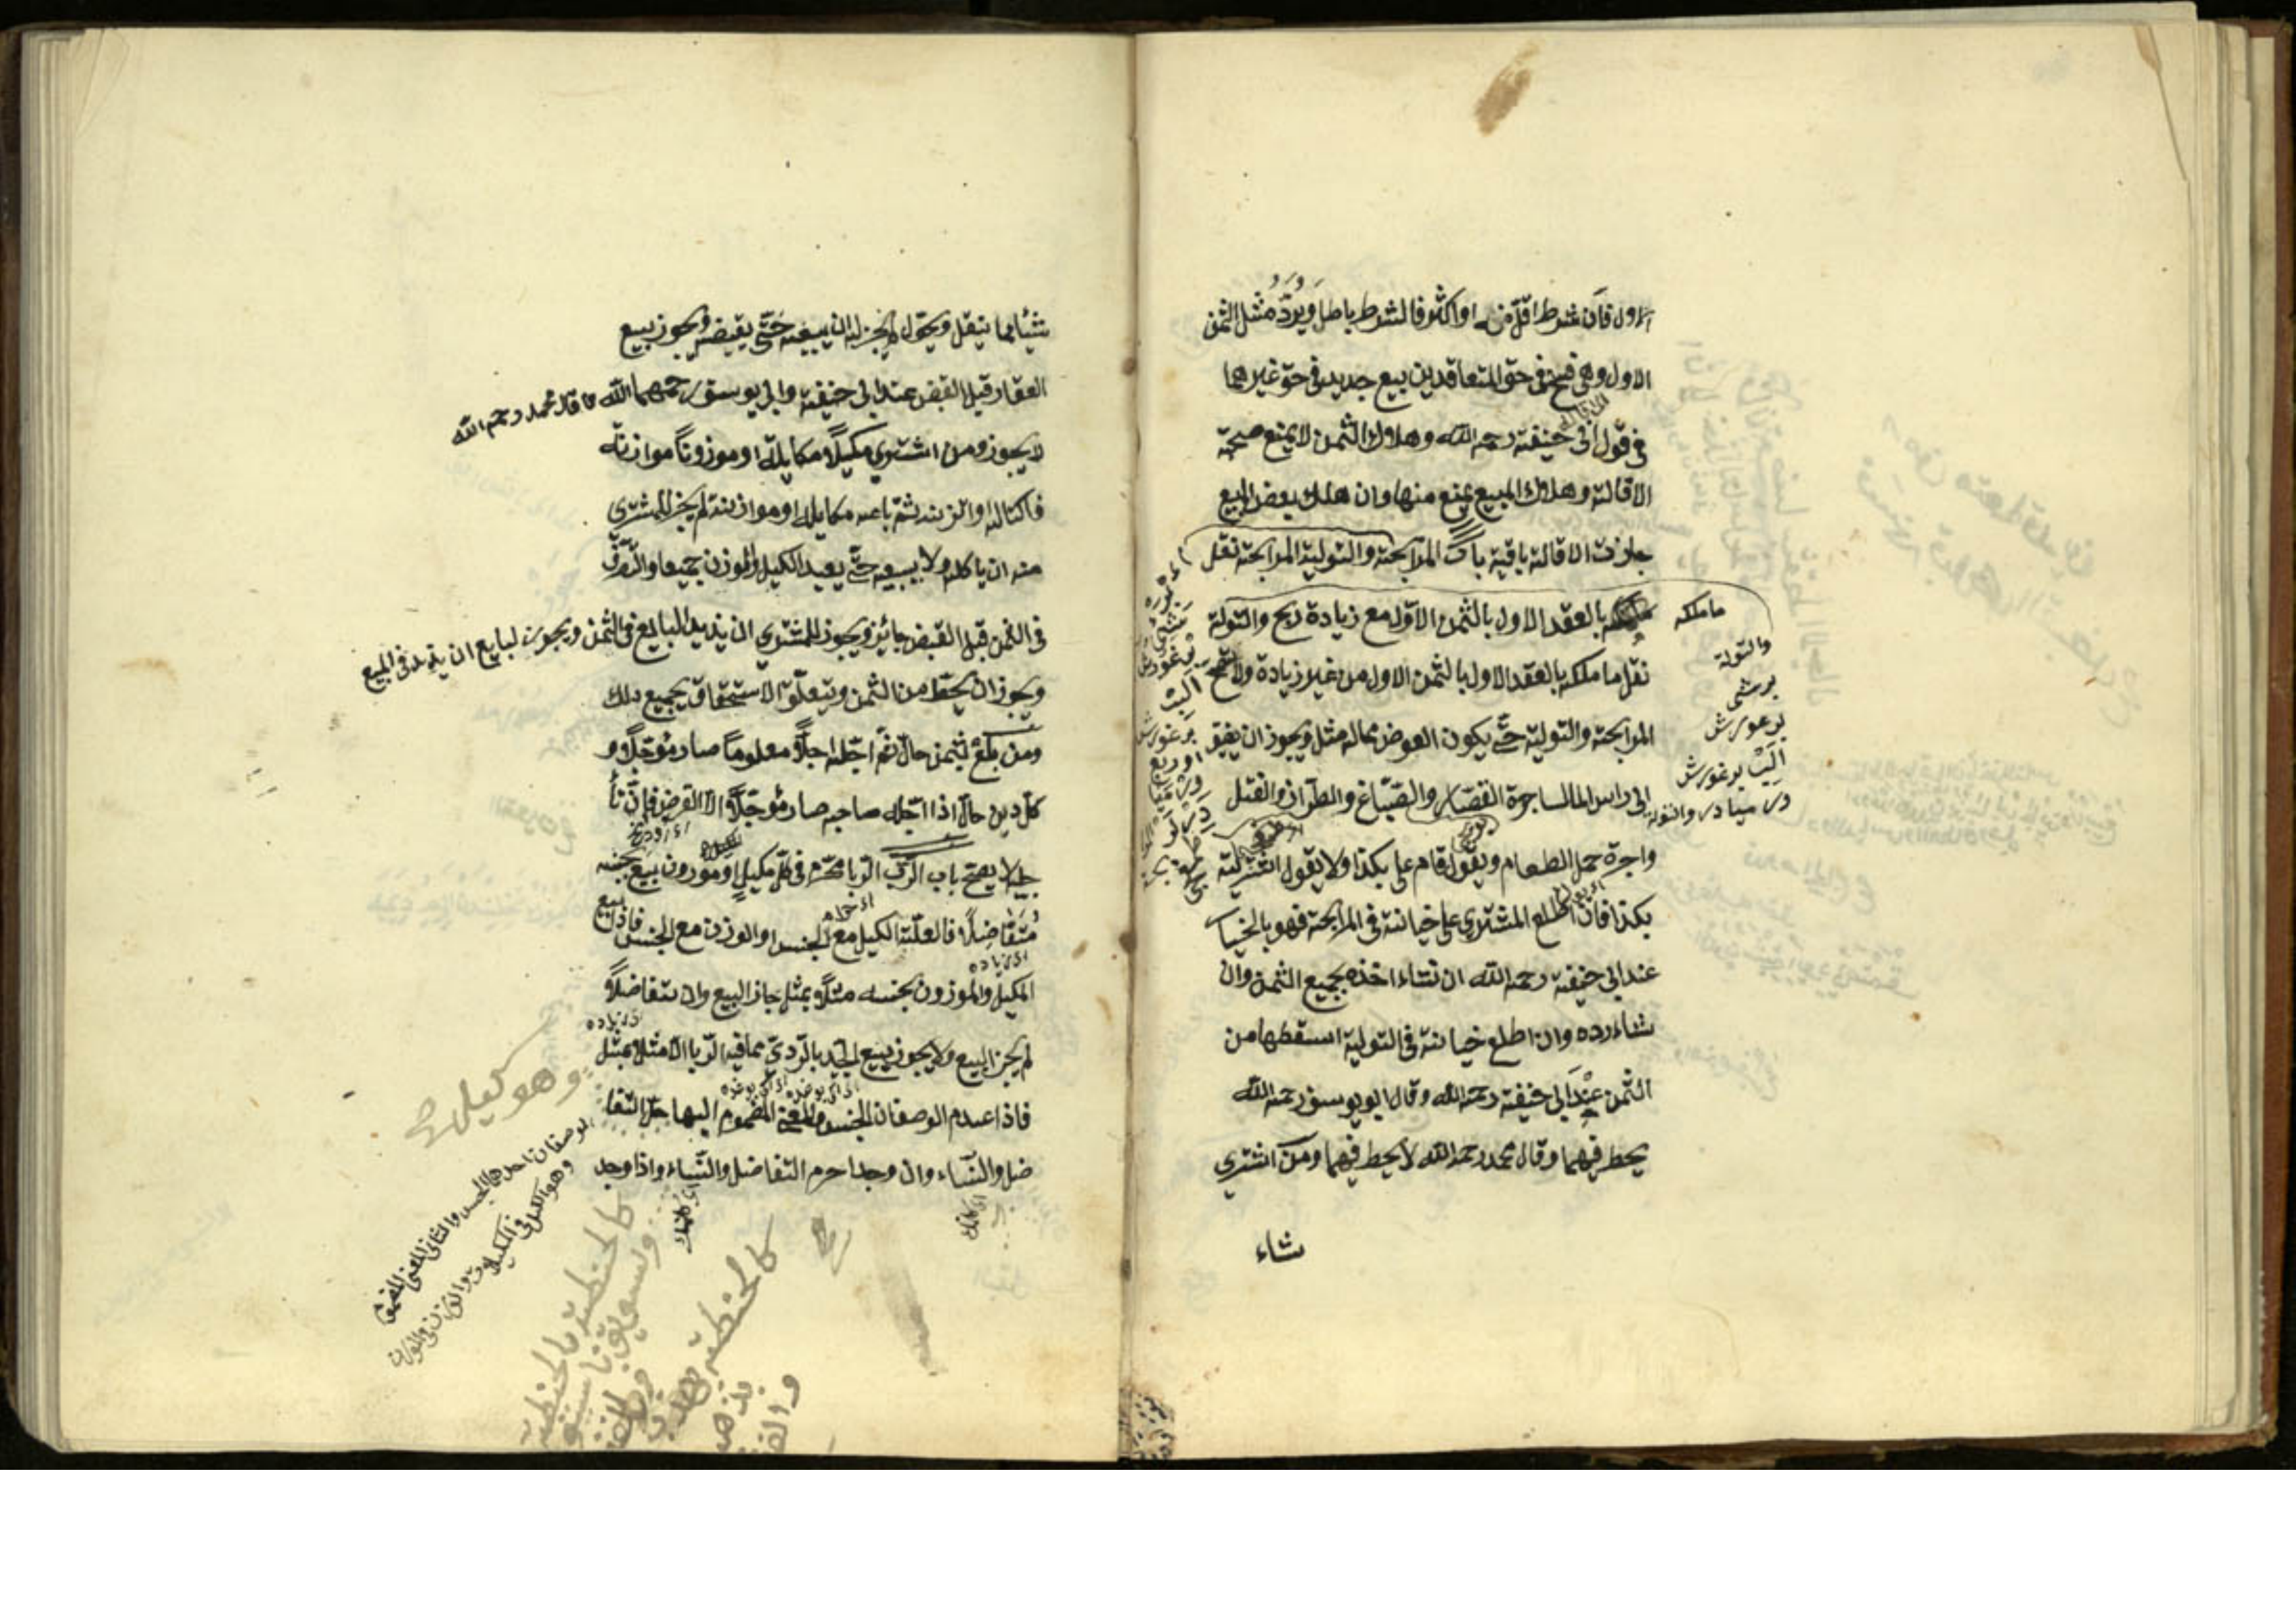 الاول فان شرط اقل منه او اكثر فالشرط باطل ويرد مثل الثمن
الاول وهي فسخ في حق المتعاقدين بيع جديد في حق غيرهما
في قول ابي حنيفة رحمه الله وهلاك الثمن لا يمنع صحة
الاقالة وهلاك المبيع يمنع منها وان هلك بعض المبيع
جازت الاقالة باقية باب المرابحة والتولية المرابحة نقل
ما ملكه بالعقد الاول بالثمن الاول مع زيادة ربح والتولة
نقل ما ملكه بالعقد الاول بالثمن الاول من غير زيادة ولا تصح
المرابحة والتولية حتى يكون العوض مماله مثل ويجوز ان يضيق
الى راس المال اجرة القصار والصباغ والطراز والفتل
واجرة حمل الطعام ويقول قام علي بكذا ولا يقول اشتريته
بكذا فان اطلع المشتري على خيانة في المرابحة فهو بالخيا
عند ابي حنيفة رحمه الله ان شاء اخذه بجميع الثمن وان
شاء رده وان اطلع خيانة في التولية اسقطها من
الثمن عند ابي حنيفة رحمه الله وقال ابو يوسف رحمه الله
يحط فيهما وقال محمد رحمه الله لا يحط فيهما ومن اشتري
شاء
شيئا مما ينقل ويحول لم يجز له ان يبيعه حتى يقبضه ويجوز بيع
العقار قبل القبض عند ابي حنيفة وابي يوسف رحمهما الله وقال محمد رحمه الله
لا يجوز ومن اشتري مكيلا مكايلة او موزونا موازنة
فاكتاله او اتزنه ثم باعه مكايلة او موازنة لم يجز للمشتري
منه ان ياكله ولا يبيعه حتى يعيد الكيل والموزن جميعا والتصرف
في الثمن قبل القبض جائز ويجوز للمشتري ان يزيد البايع في الثمن ويجوز لبايع ان يزيد في المبيع
ويجوز ان يحط من الثمن ويتعلق الاستحقاق بجميع ذلك
ومن باع بثمن حال ثم اجله اجلا معلوما صار مؤجلا و
كل دين حال اذا اجله صاحبه صار مؤجلا الا القرض فان تأ
جيله لا يصح باب الربا الربا محرم في كل مكيل او موزون بيع بجنسه
متفاضلا فالعلة الكيل مع الجنس او الوزن مع الجنس فاذا بيع
المكيل والموزون بجنسه مثلا بمثل جاز البيع وان تفاضلا
لم يجز البيع ولا يجوز بيع الجيد بالردي مما فيه الربا الا مثلا بمثل
فاذا عدم الوصفان الجنس والمعنى المضموم اليها حل التفا
ضل والنساء وان وجدا حرم التفاضل والنساء واذا وجد
الوصفان احدهما الجنس والثاني المعنى المضموم
وهو الكيل في الكيلات والوزن في الموزون
كالحنطة بالحنطة